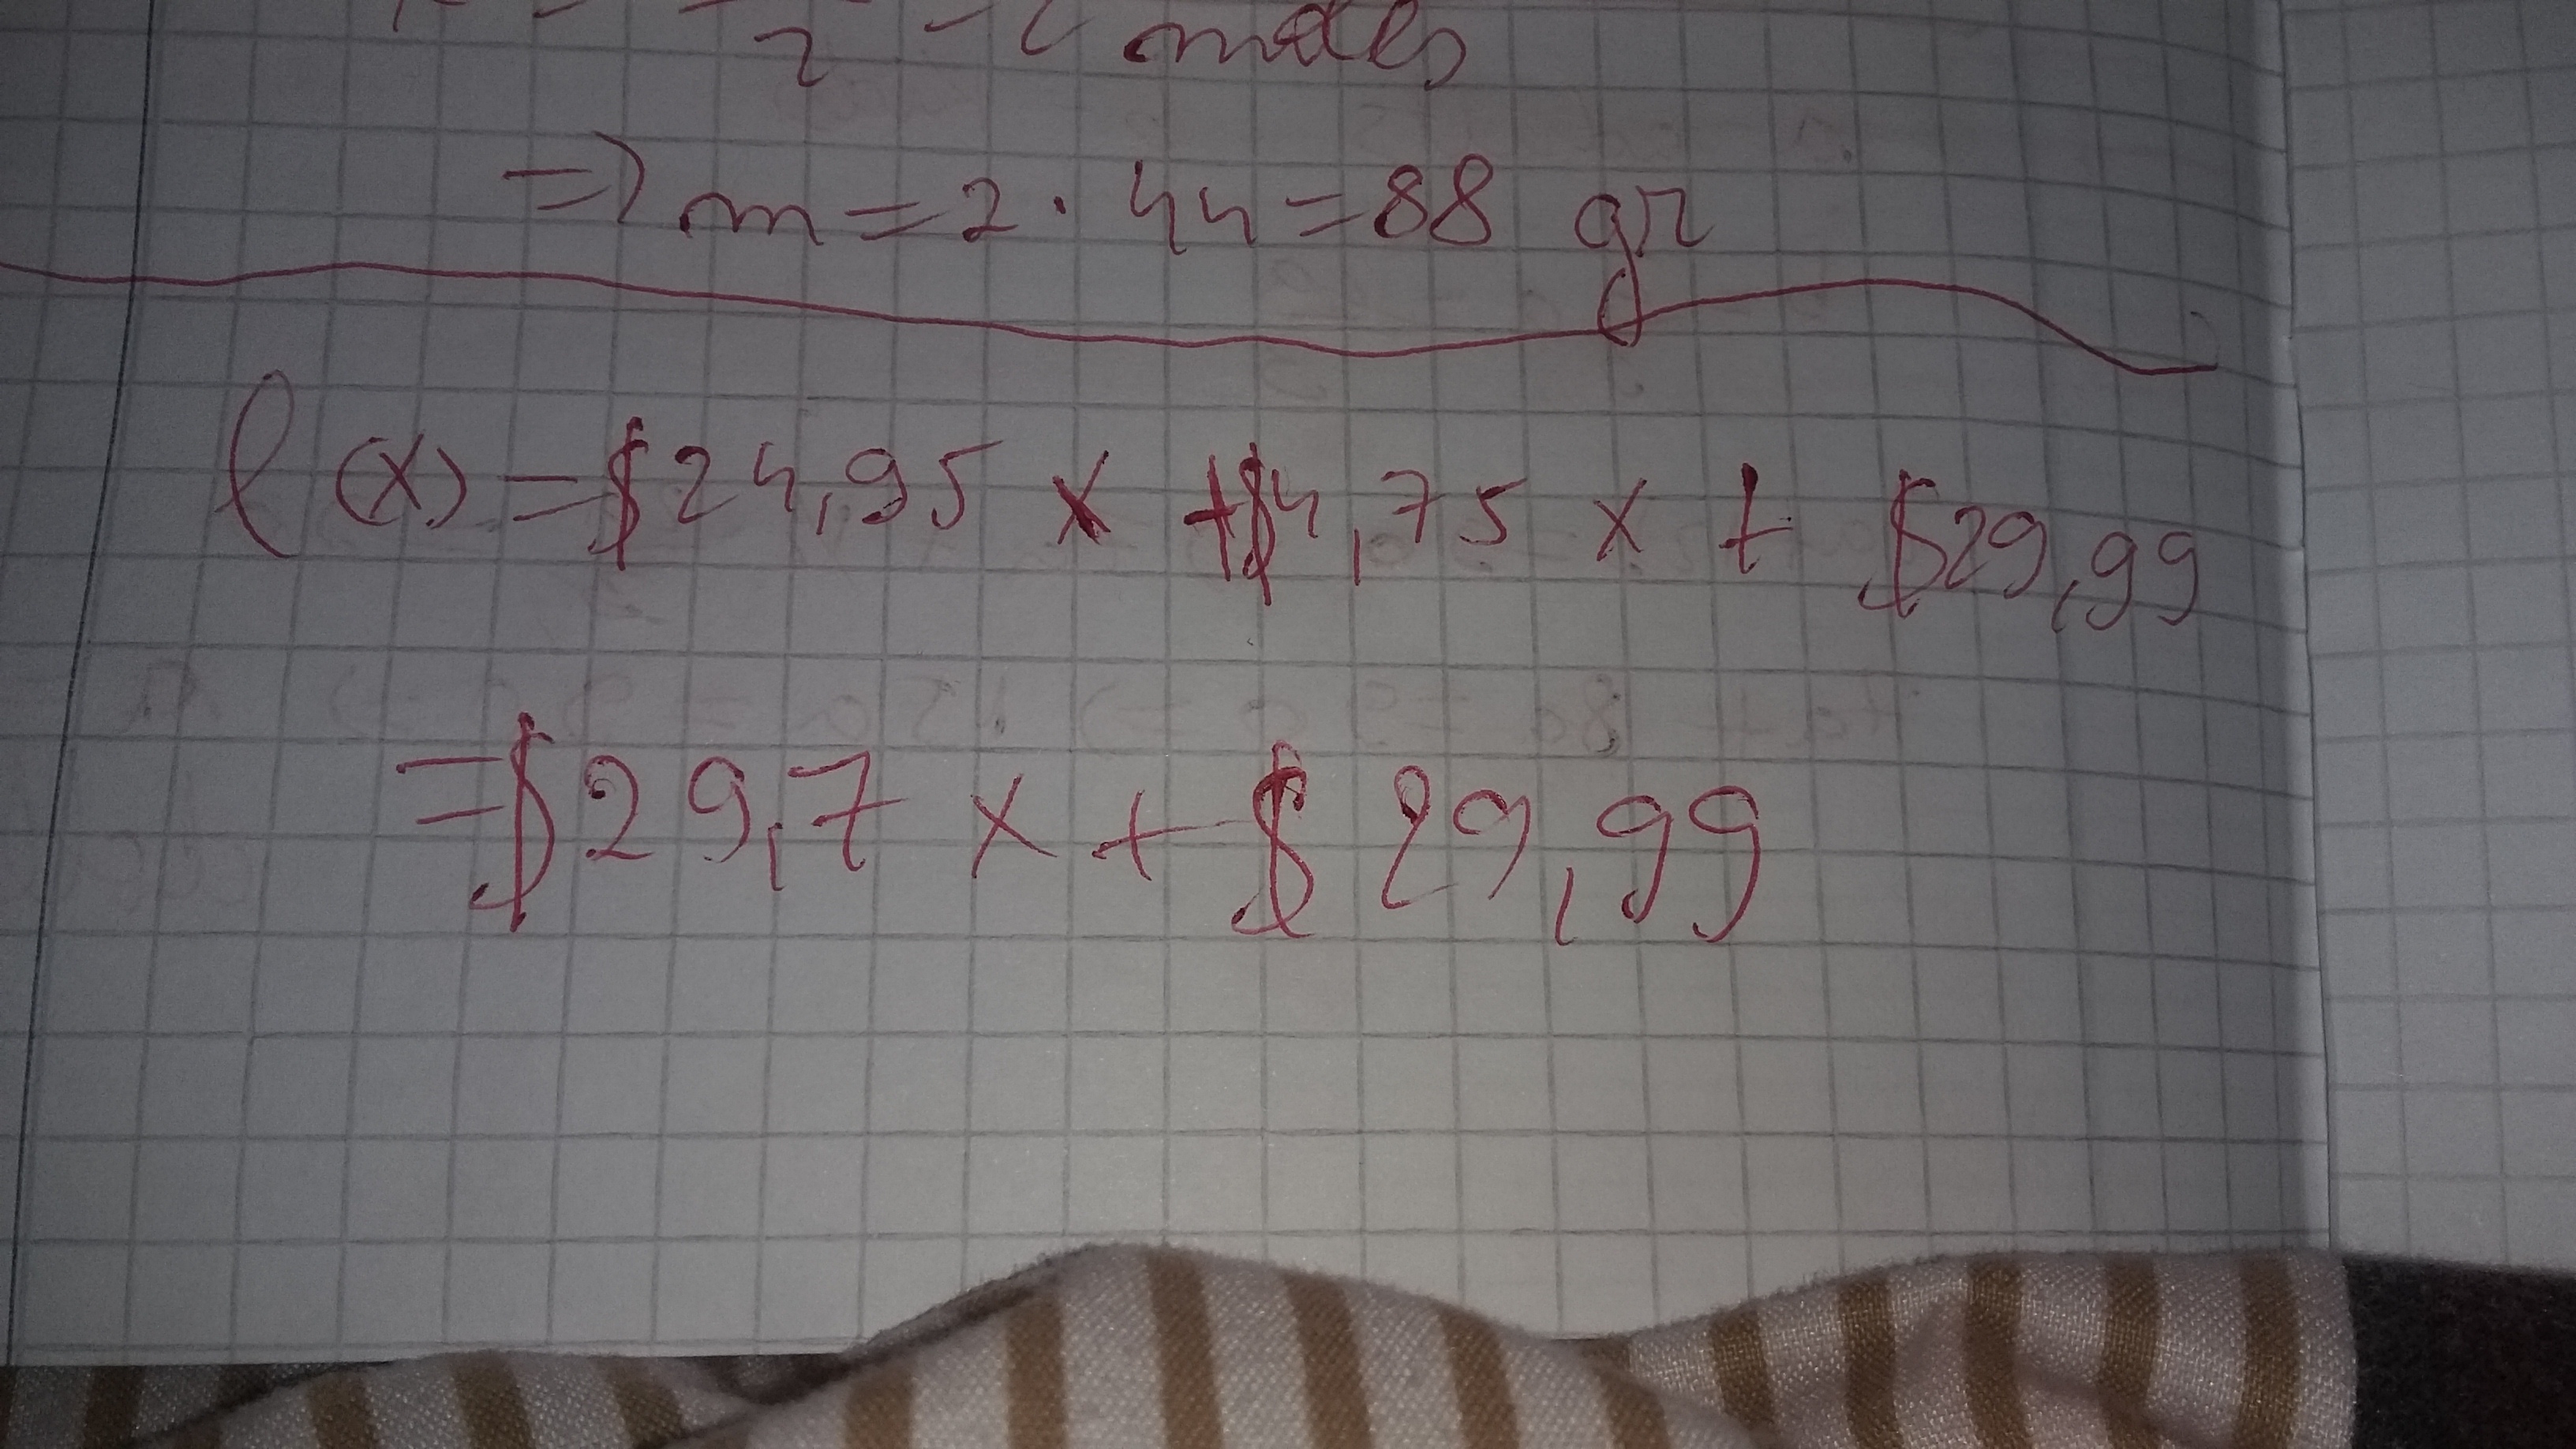 2 moles
=> m = 2 · 44 = 88 gr
f(x) = $24,95 x + $4,75 x + $29,99
= $29,7 x + $29,99